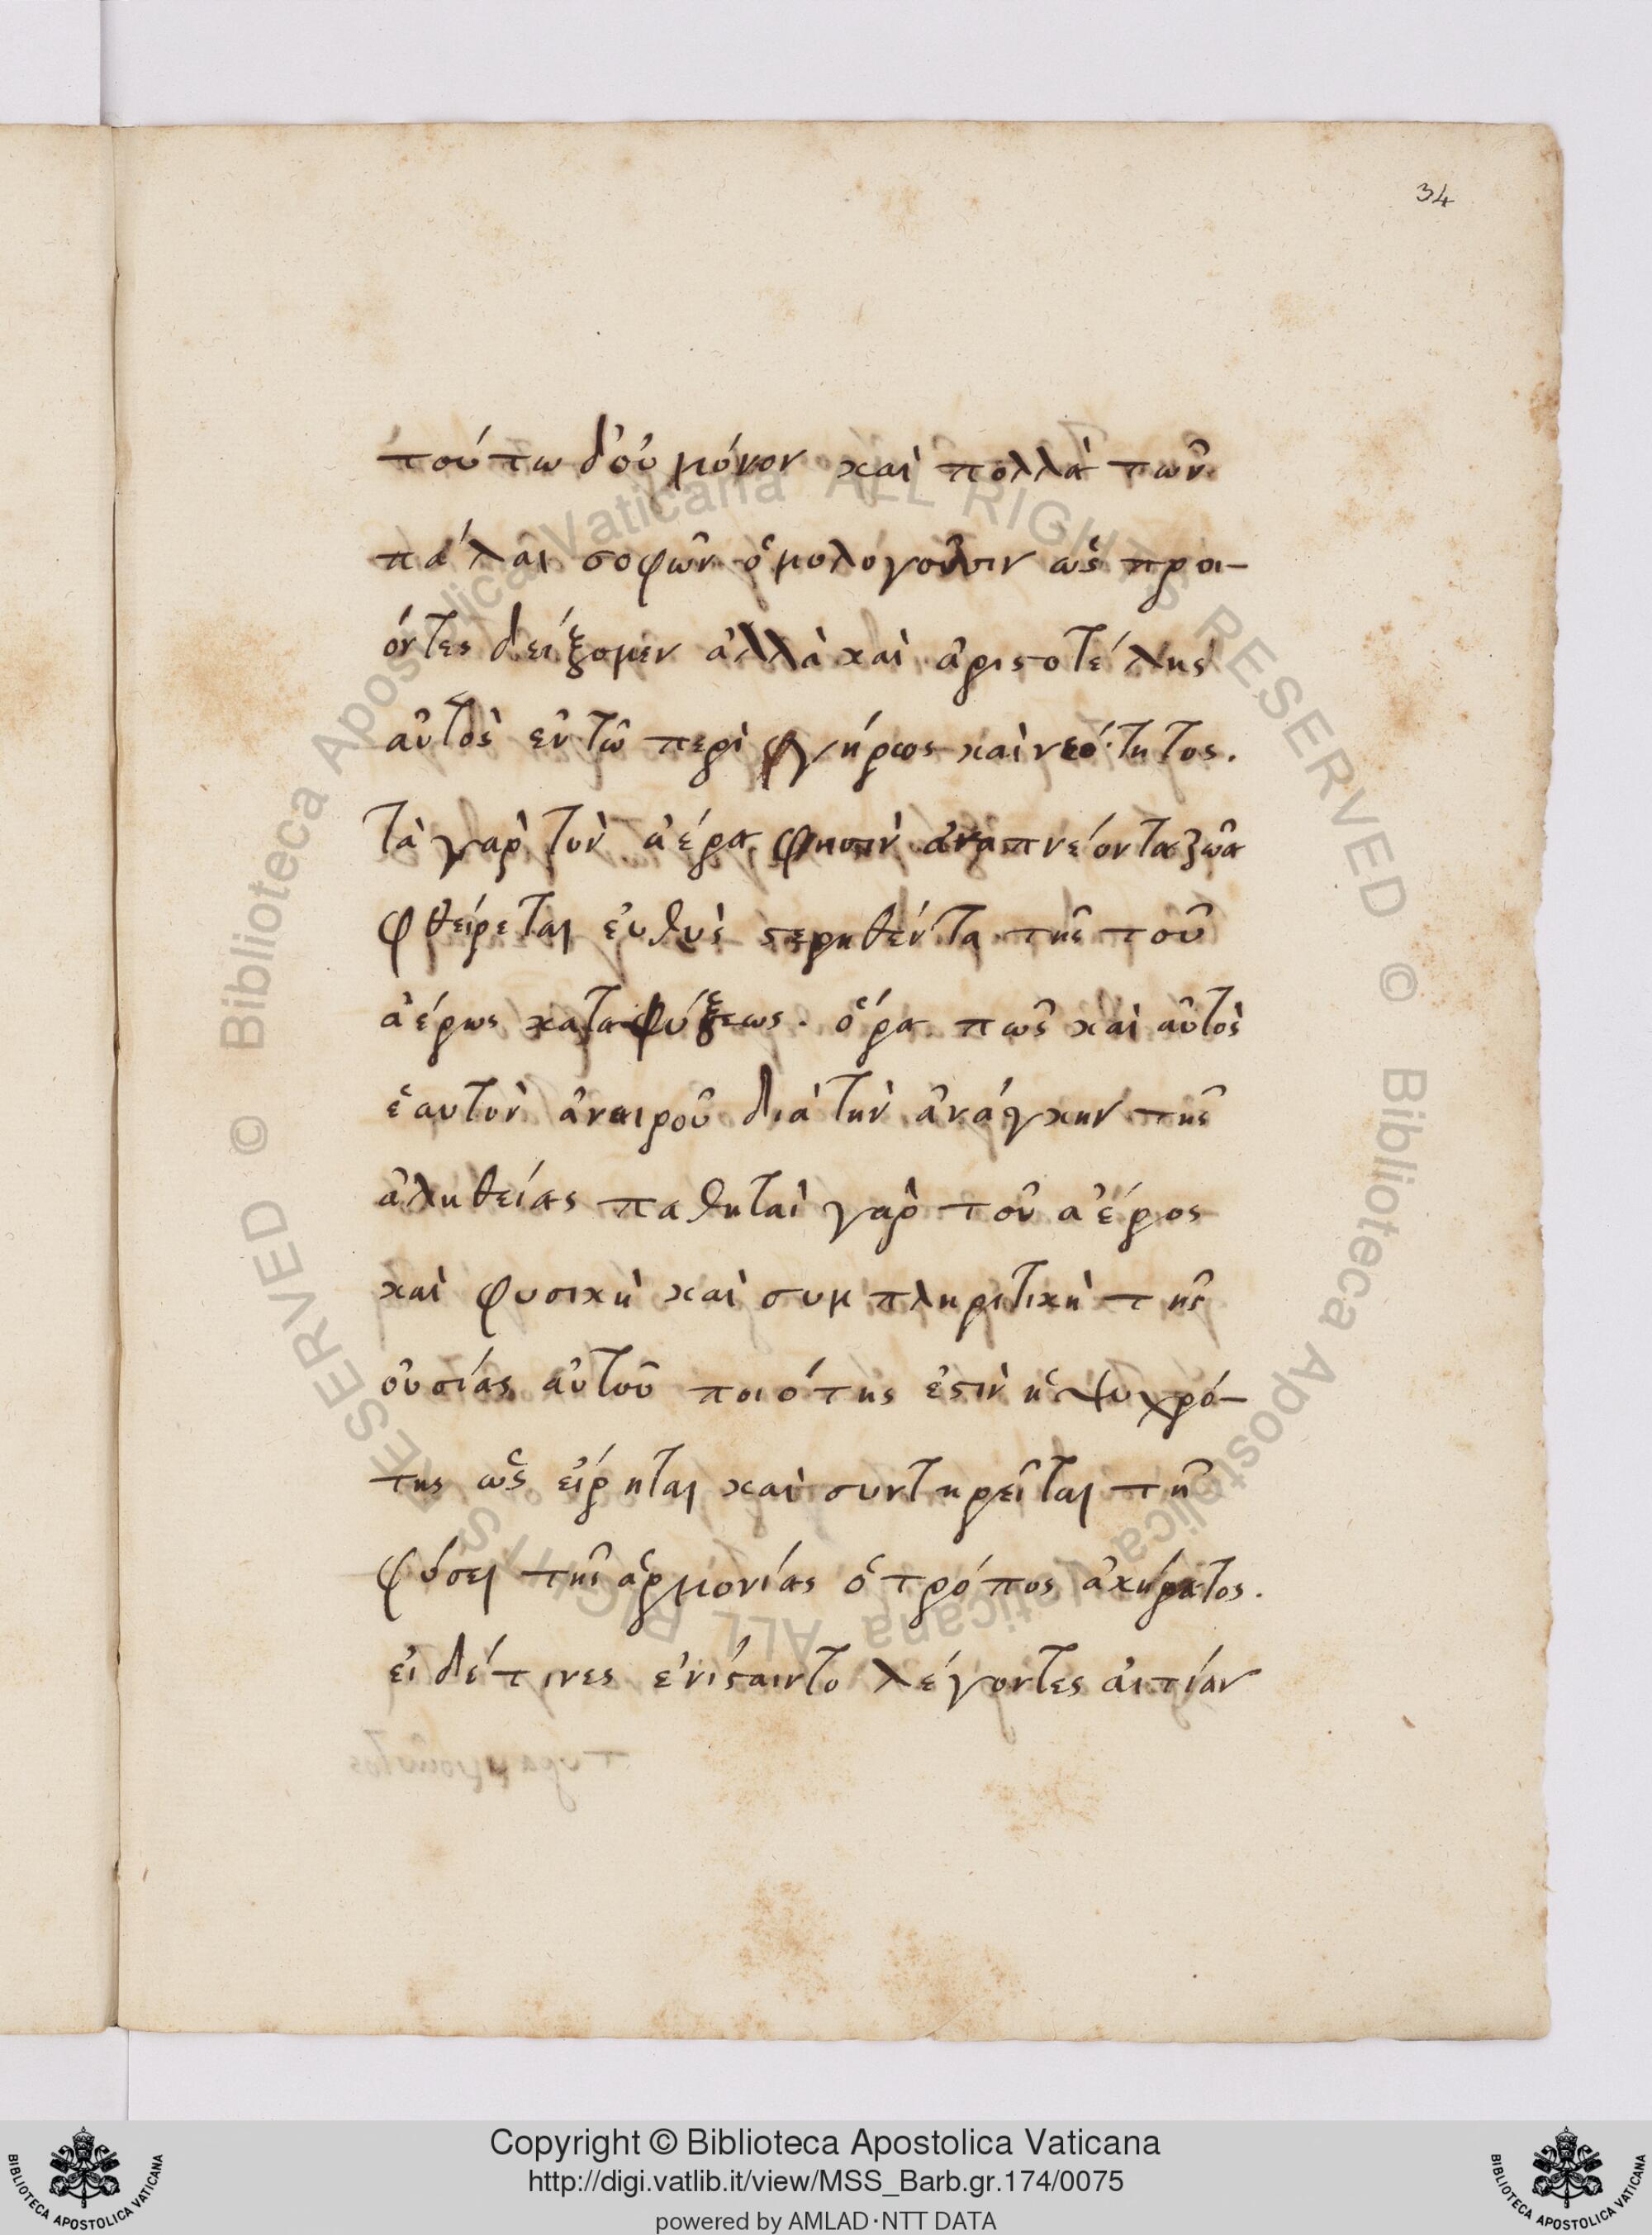 34
τούτω δ' οὐ μόνον καὶ πολλὰ τῶν
πάλαι σοφῶν ὁμολογοῦσιν ὡς προϊ-
όντες δείξομεν ἀλλὰ καὶ ἀριστοτέλης
αὐτὸς ἐν τῶ περὶ γήρως καὶ νεότητος.
τὰ γὰρ τὸν ἀέρα φησὶν ἀναπνέοντα ζῶα
φθείρεται ἐυθὺς στερηθέντα τῆς τοῦ
ἀέρως καταψύξεως. ὅρα πῶς καὶ αὐτὸς
ἑαυτὸν ἀναιροῦ διὰ τὴν ἀνάγκην τῆς
ἀληθείας παθηταὶ γὰρ τοῦ ἀέρος
καὶ φυσικὴ καὶ συμπληριτικὴ τῆς
οὐσίας αὐτοῦ ποιότης ἐστὶν ἡ ψυχρό-
της ὡς εἴρηται καὶ συντηρεῖται τῆ
φύσει τῆς ἁρμονίας ὁ τρόπος ἀκήρατος.
εἰ δέ τινες ἐνίσταιντο λέγοντες ἀιτίαν
Copyright © Biblioteca Apostolica Vaticana
http://digi.vatlib.it/view/MSS_Barb.gr.174/0075
powered by AMLAD·NTT DATA
BIBLIOTECA APOSTOLICA VATICANA
BIBLIOTECA APOSTOLICA VATICANA
© Biblioteca Apostolica Vaticana ALL RIGHTS RESERVED © Biblioteca Apostolica Vaticana ALL RIGHTS RESERVED